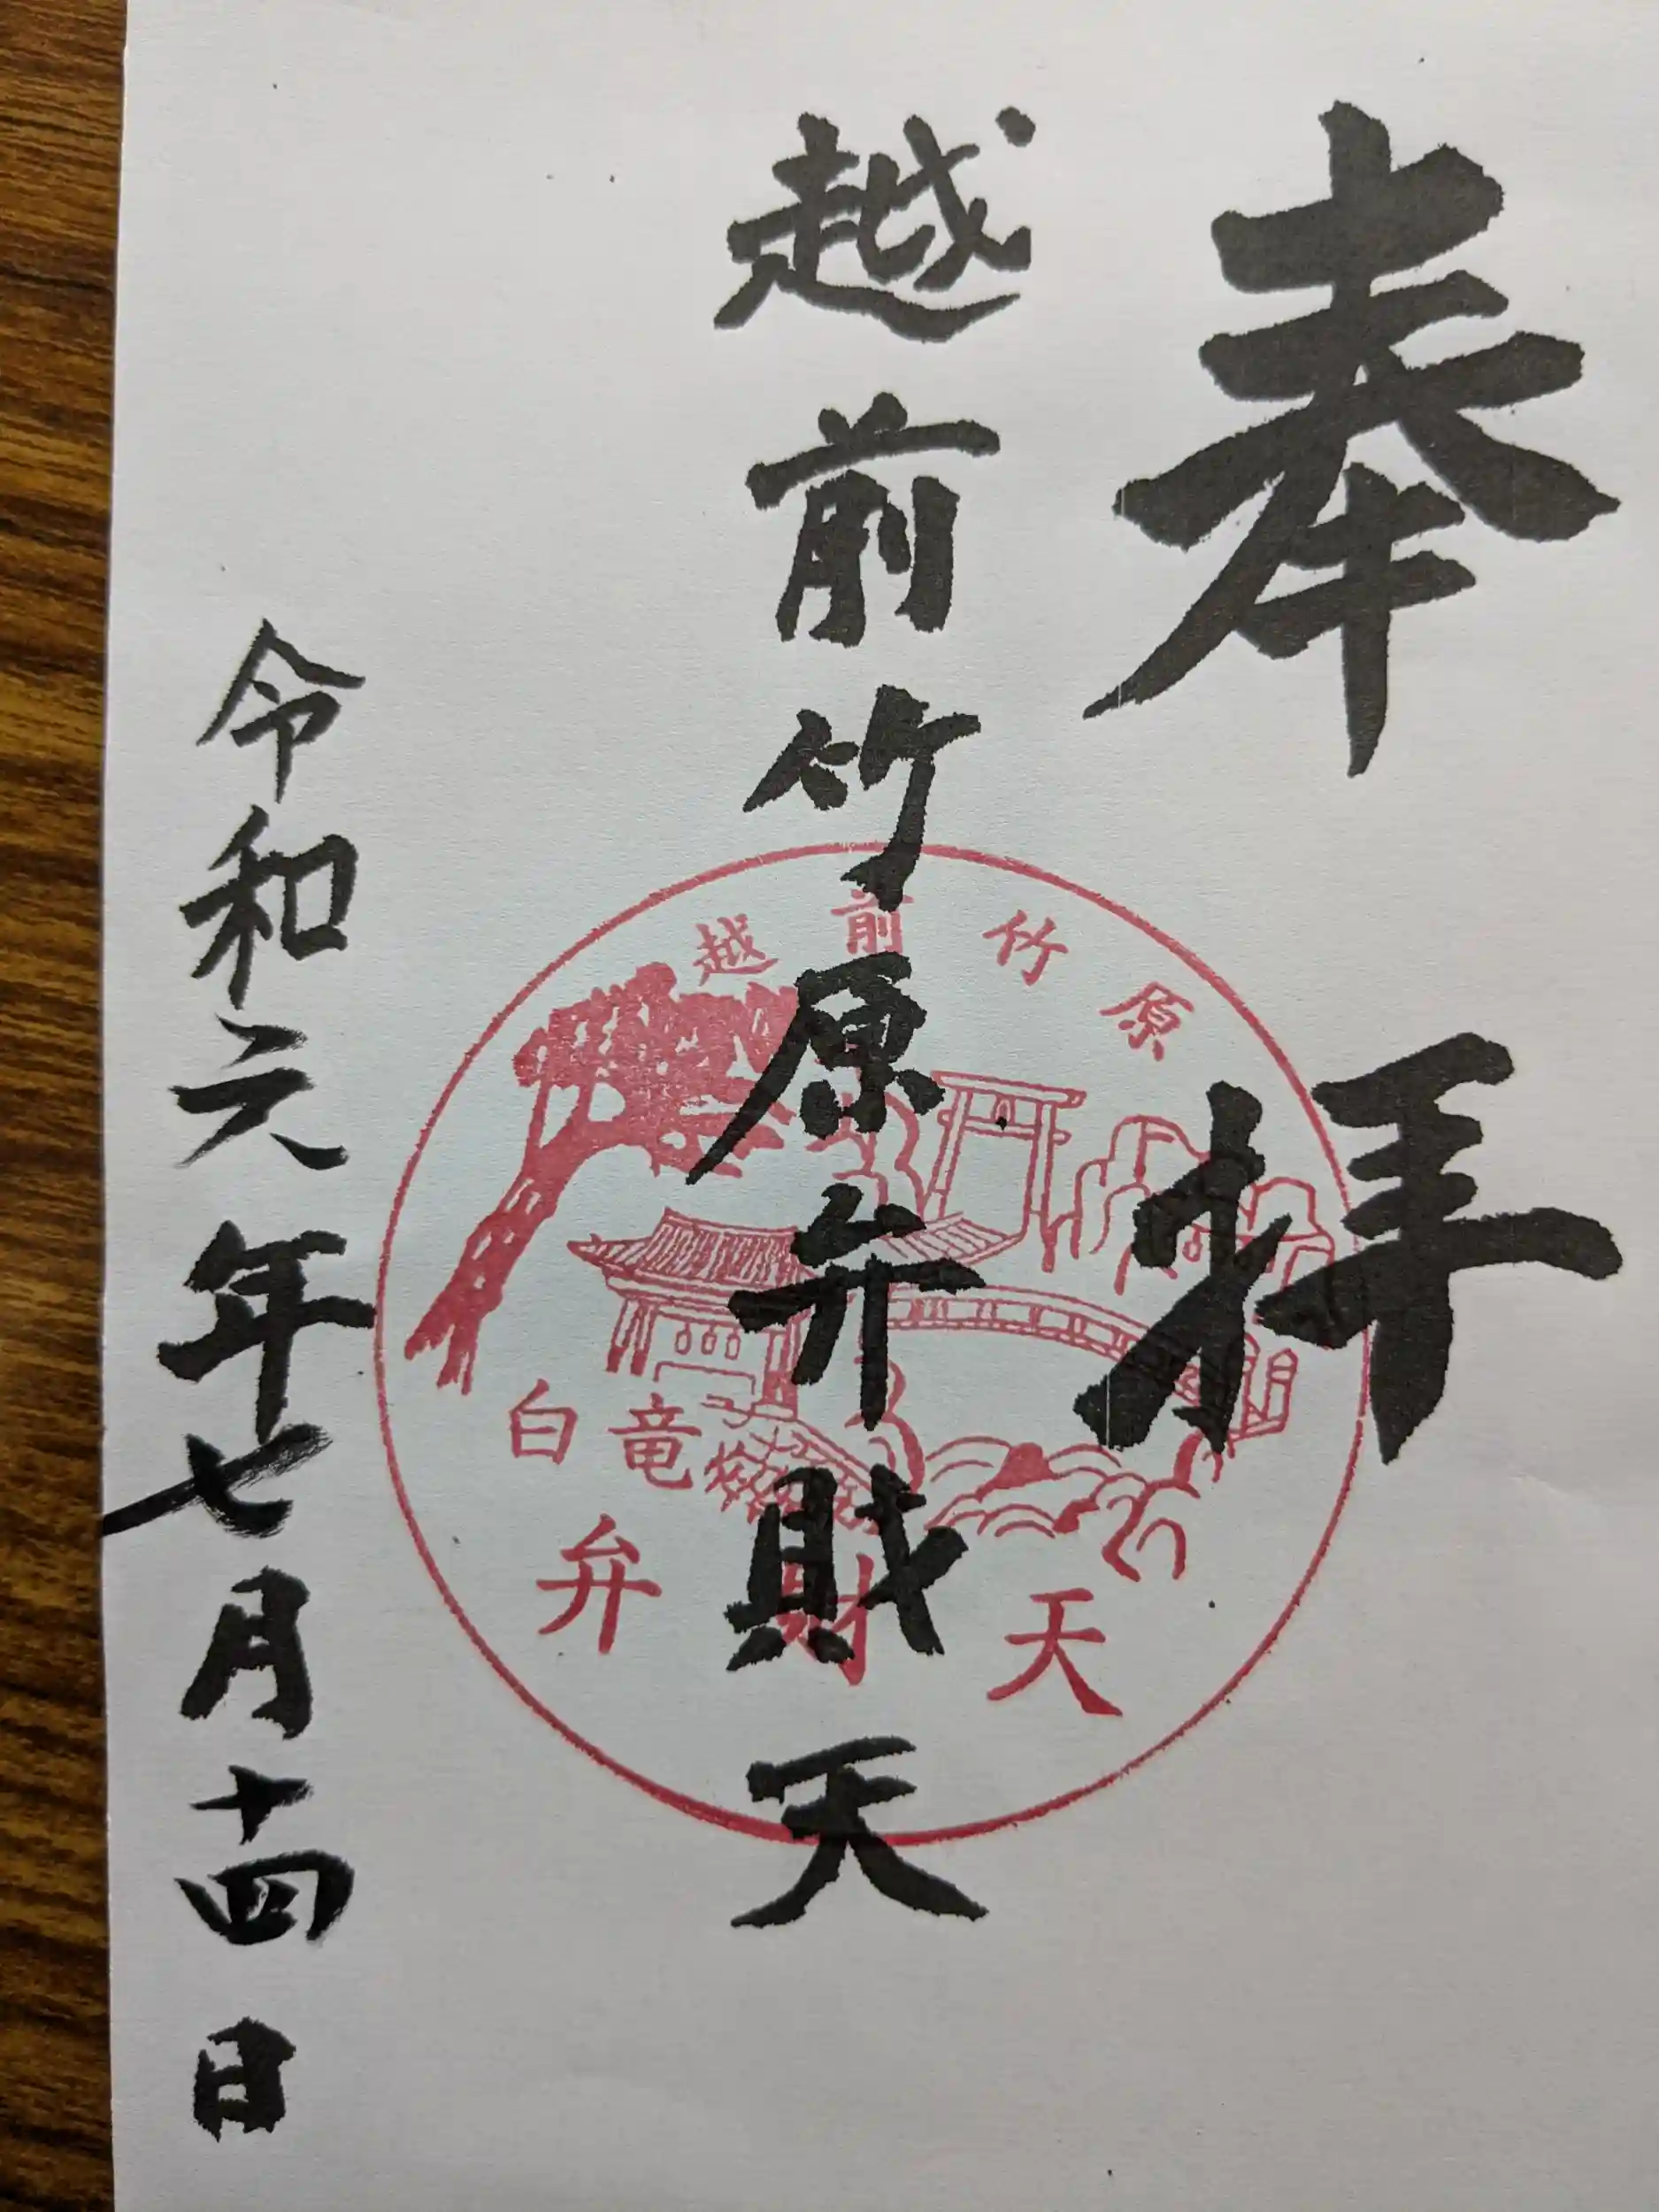 奉拝
越前竹原弁財天
令和元年七月十四日
越前竹原
白竜
弁財天